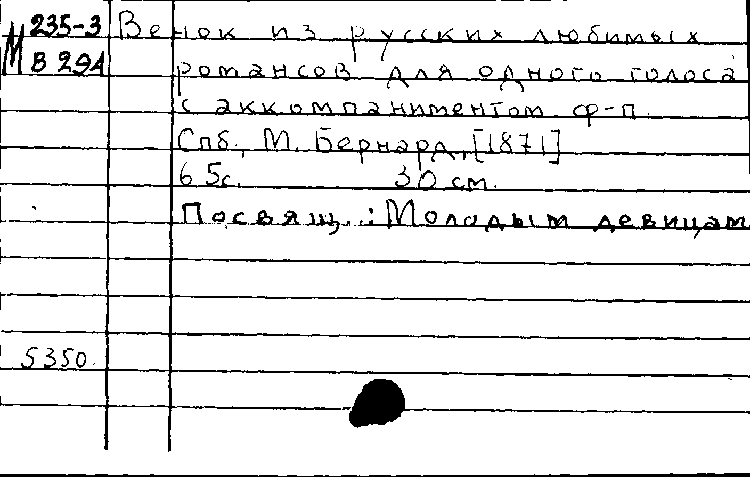 М 235-3
В 291
Венок из русских любимых
романсов для одного голоса
с аккомпаниментом ф-п.
Спб., М. Бернард, [1871]
65с. 30 см.
Посвящ.: Молодым девицам
5350.